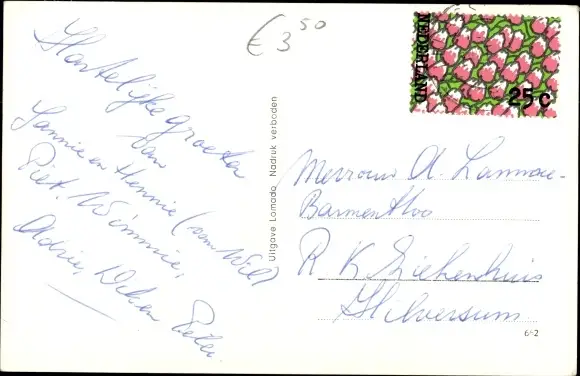 € 3 50
NEDERLAND
25 c
Hartelijke groeten
van
Jannie en Hennie (van Wil)
Piet. Wimmie,
Adrie, Peter
Uitgave Lomado, Nadruk verboden
Mevrouw A. Lammae-
Barmentloo
R K Ziekenhuis
Hilversum
6-2